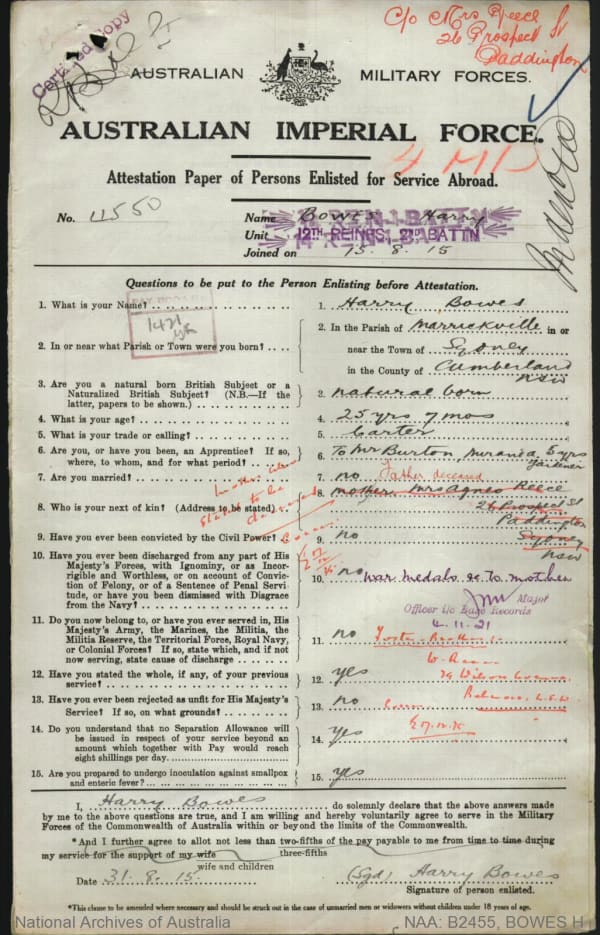 Certified Copy
C/o Mrs Reece
26 Prospect St
Paddington
AUSTRALIAN MILITARY FORCES.
AUSTRALIAN IMPERIAL FORCE.
4 MD
Attestation Paper of Persons Enlisted for Service Abroad.
No. 4550 Name BOWES Harry
Unit 12TH REINFS, 2ND BATTN
Joined on 15.8.15
Questions to be put to the Person Enlisting before Attestation.
1. What is your Name? 1. Harry Bowes
1421
2. In or near what Parish or Town were you born? 2. In the Parish of Marrickville in or
near the Town of Sydney
in the County of Cumberland
NSW
3. Are you a natural born British Subject or a
Naturalized British Subject? (N.B.—If the
latter, papers to be shown.) 3. natural born
4. What is your age? 4. 25 yrs 7 mos
5. What is your trade or calling? 5. Carter
6. Are you, or have you been, an Apprentice? If so,
where, to whom, and for what period? 6. To Mr Burton, Miranda, 5 yrs
Gardener
7. Are you married? 7. no Father deceased
8. Who is your next of kin? (Address to be stated) 8. mother Mrs Agnes Reece
26 Prospect St
Paddington
Sydney
NSW
Mother
stated to be
deceased
9. Have you ever been convicted by the Civil Power? 9. no
10. Have you ever been discharged from any part of His
Majesty's Forces, with Ignominy, or as Incor-
rigible and Worthless, or on account of Convic-
tion of Felony, or of a Sentence of Penal Servi-
tude, or have you been dismissed with Disgrace
from the Navy? 10. no
War medals &c to mother
Major
Officer i/c Base Records
4.11.21
11. Do you now belong to, or have you ever served in, His
Majesty's Army, the Marines, the Militia, the
Militia Reserve, the Territorial Force, Royal Navy,
or Colonial Forces? If so, state which, and if not
now serving, state cause of discharge 11. no
Foster Brother
W.
29 Wilson
12. Have you stated the whole, if any, of your previous
service? 12. yes
13. Have you ever been rejected as unfit for His Majesty's
Service? If so, on what grounds? 13. no
14. Do you understand that no Separation Allowance will
be issued in respect of your service beyond an
amount which together with Pay would reach
eight shillings per day. 14. yes
15. Are you prepared to undergo inoculation against smallpox
and enteric fever? 15. yes
I, Harry Bowes do solemnly declare that the above answers made
by me to the above questions are true, and I am willing and hereby voluntarily agree to serve in the Military
Forces of the Commonwealth of Australia within or beyond the limits of the Commonwealth.
*And I further agree to allot not less than two-fifths of the pay payable to me from time to time during
three-fifths
my service for the support of my wife
wife and children
Date 31.8.15 (Sgd) Harry Bowes
Signature of person enlisted.
*This clause to be amended where necessary and should be struck out in the case of unmarried men or widowers without children under 18 years of age.
National Archives of Australia NAA: B2455, BOWES H